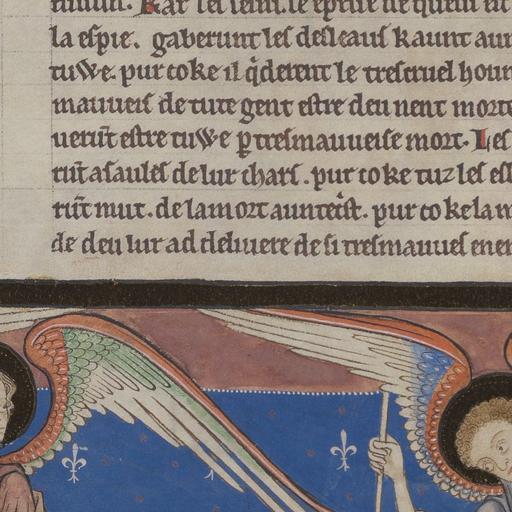 Kar les seinz. le esprit de queus est
la espie. gaberunt les desleaus kaunt aun
tuwe. pur co ke il q̇derent le trescruel hom
mauueis de tute gent estre deu nent morte
uerūt estre tuwe ꝑ tresmauueise mort. Les
rūt asaules de lur chars. pur co ke tuz les est
rūt mut. de la mort auntecͥst. pur co ke la m
de deu lur ad deliuere de si tresmauues ene